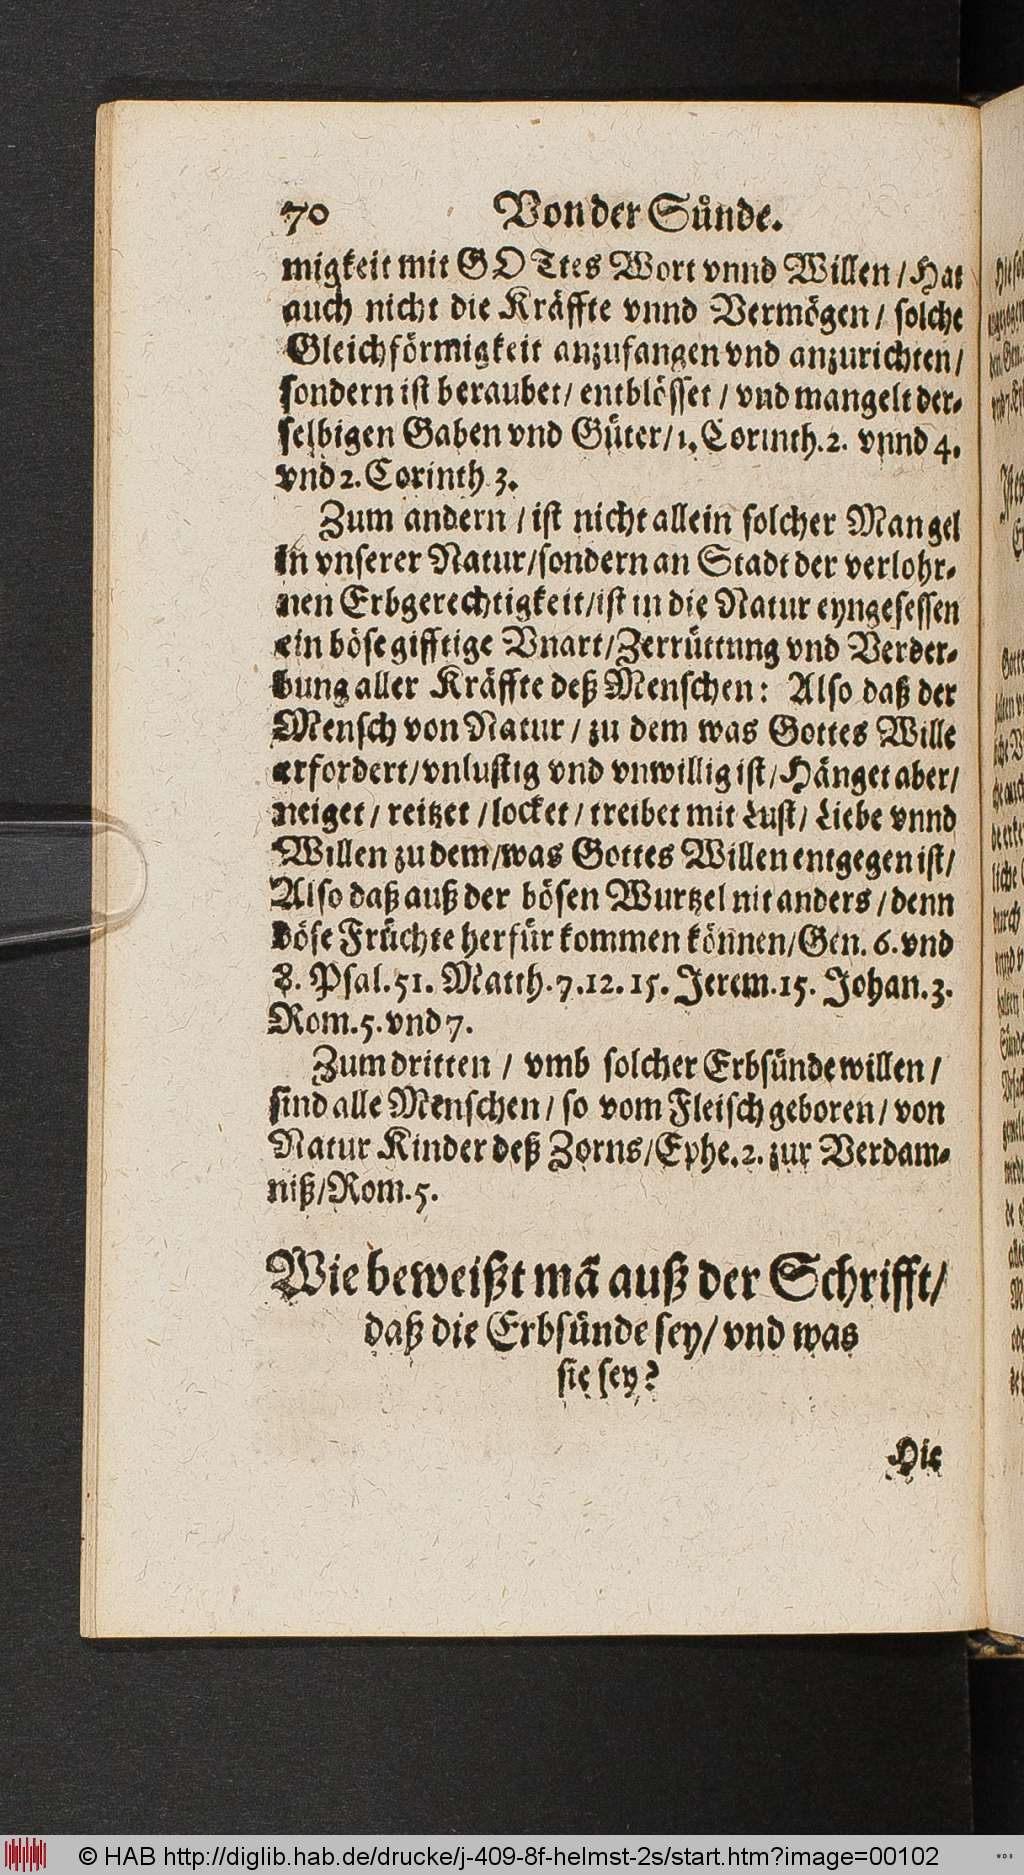 70 Von der Sünde.
migkeit mit GOTtes Wort vnnd Willen / Hat
auch nicht die Kräffte vnnd Vermögen / solche
Gleichförmigkeit anzufangen vnd anzurichten /
sondern ist beraubet / entblösset / vnd mangelt der-
selbigen Gaben vnd Güter / 1. Corinth. 2. vnnd 4.
vnd 2. Corinth 3.
Zum andern / ist nicht allein solcher Mangel
in vnserer Natur / sondern an Stadt der verlohr-
nen Erbgerechtigkeit / ist in die Natur eyngesessen
ein böse gifftige Vnart / Zerrüttung vnd Verder-
bung aller Kräffte deß Menschen: Also daß der
Mensch von Natur / zu dem was Gottes Wille
erfordert / vnlustig vnd vnwillig ist / Hänget aber /
neiget / reitzet / locket / treibet mit Lust / Liebe vnnd
Willen zu dem / was Gottes Willen entgegen ist /
Also daß auß der bösen Wurtzel nit anders / denn
böse Früchte herfür kommen können / Gen. 6. vnd
8. Psal. 51. Matth. 7. 12. 15. Jerem. 15. Johan. 3.
Rom. 5. vnd 7.
Zum dritten / vmb solcher Erbsünde willen /
sind alle Menschen / so vom Fleisch geboren / von
Natur Kinder deß Zorns / Ephe. 2. zur Verdam-
niß / Rom. 5.
Wie beweißt mã auß der Schrifft /
daß die Erbsünde sey / vnd was
sie sey?
Hie
© HAB http://diglib.hab.de/drucke/j-409-8f-helmst-2s/start.htm?image=00102